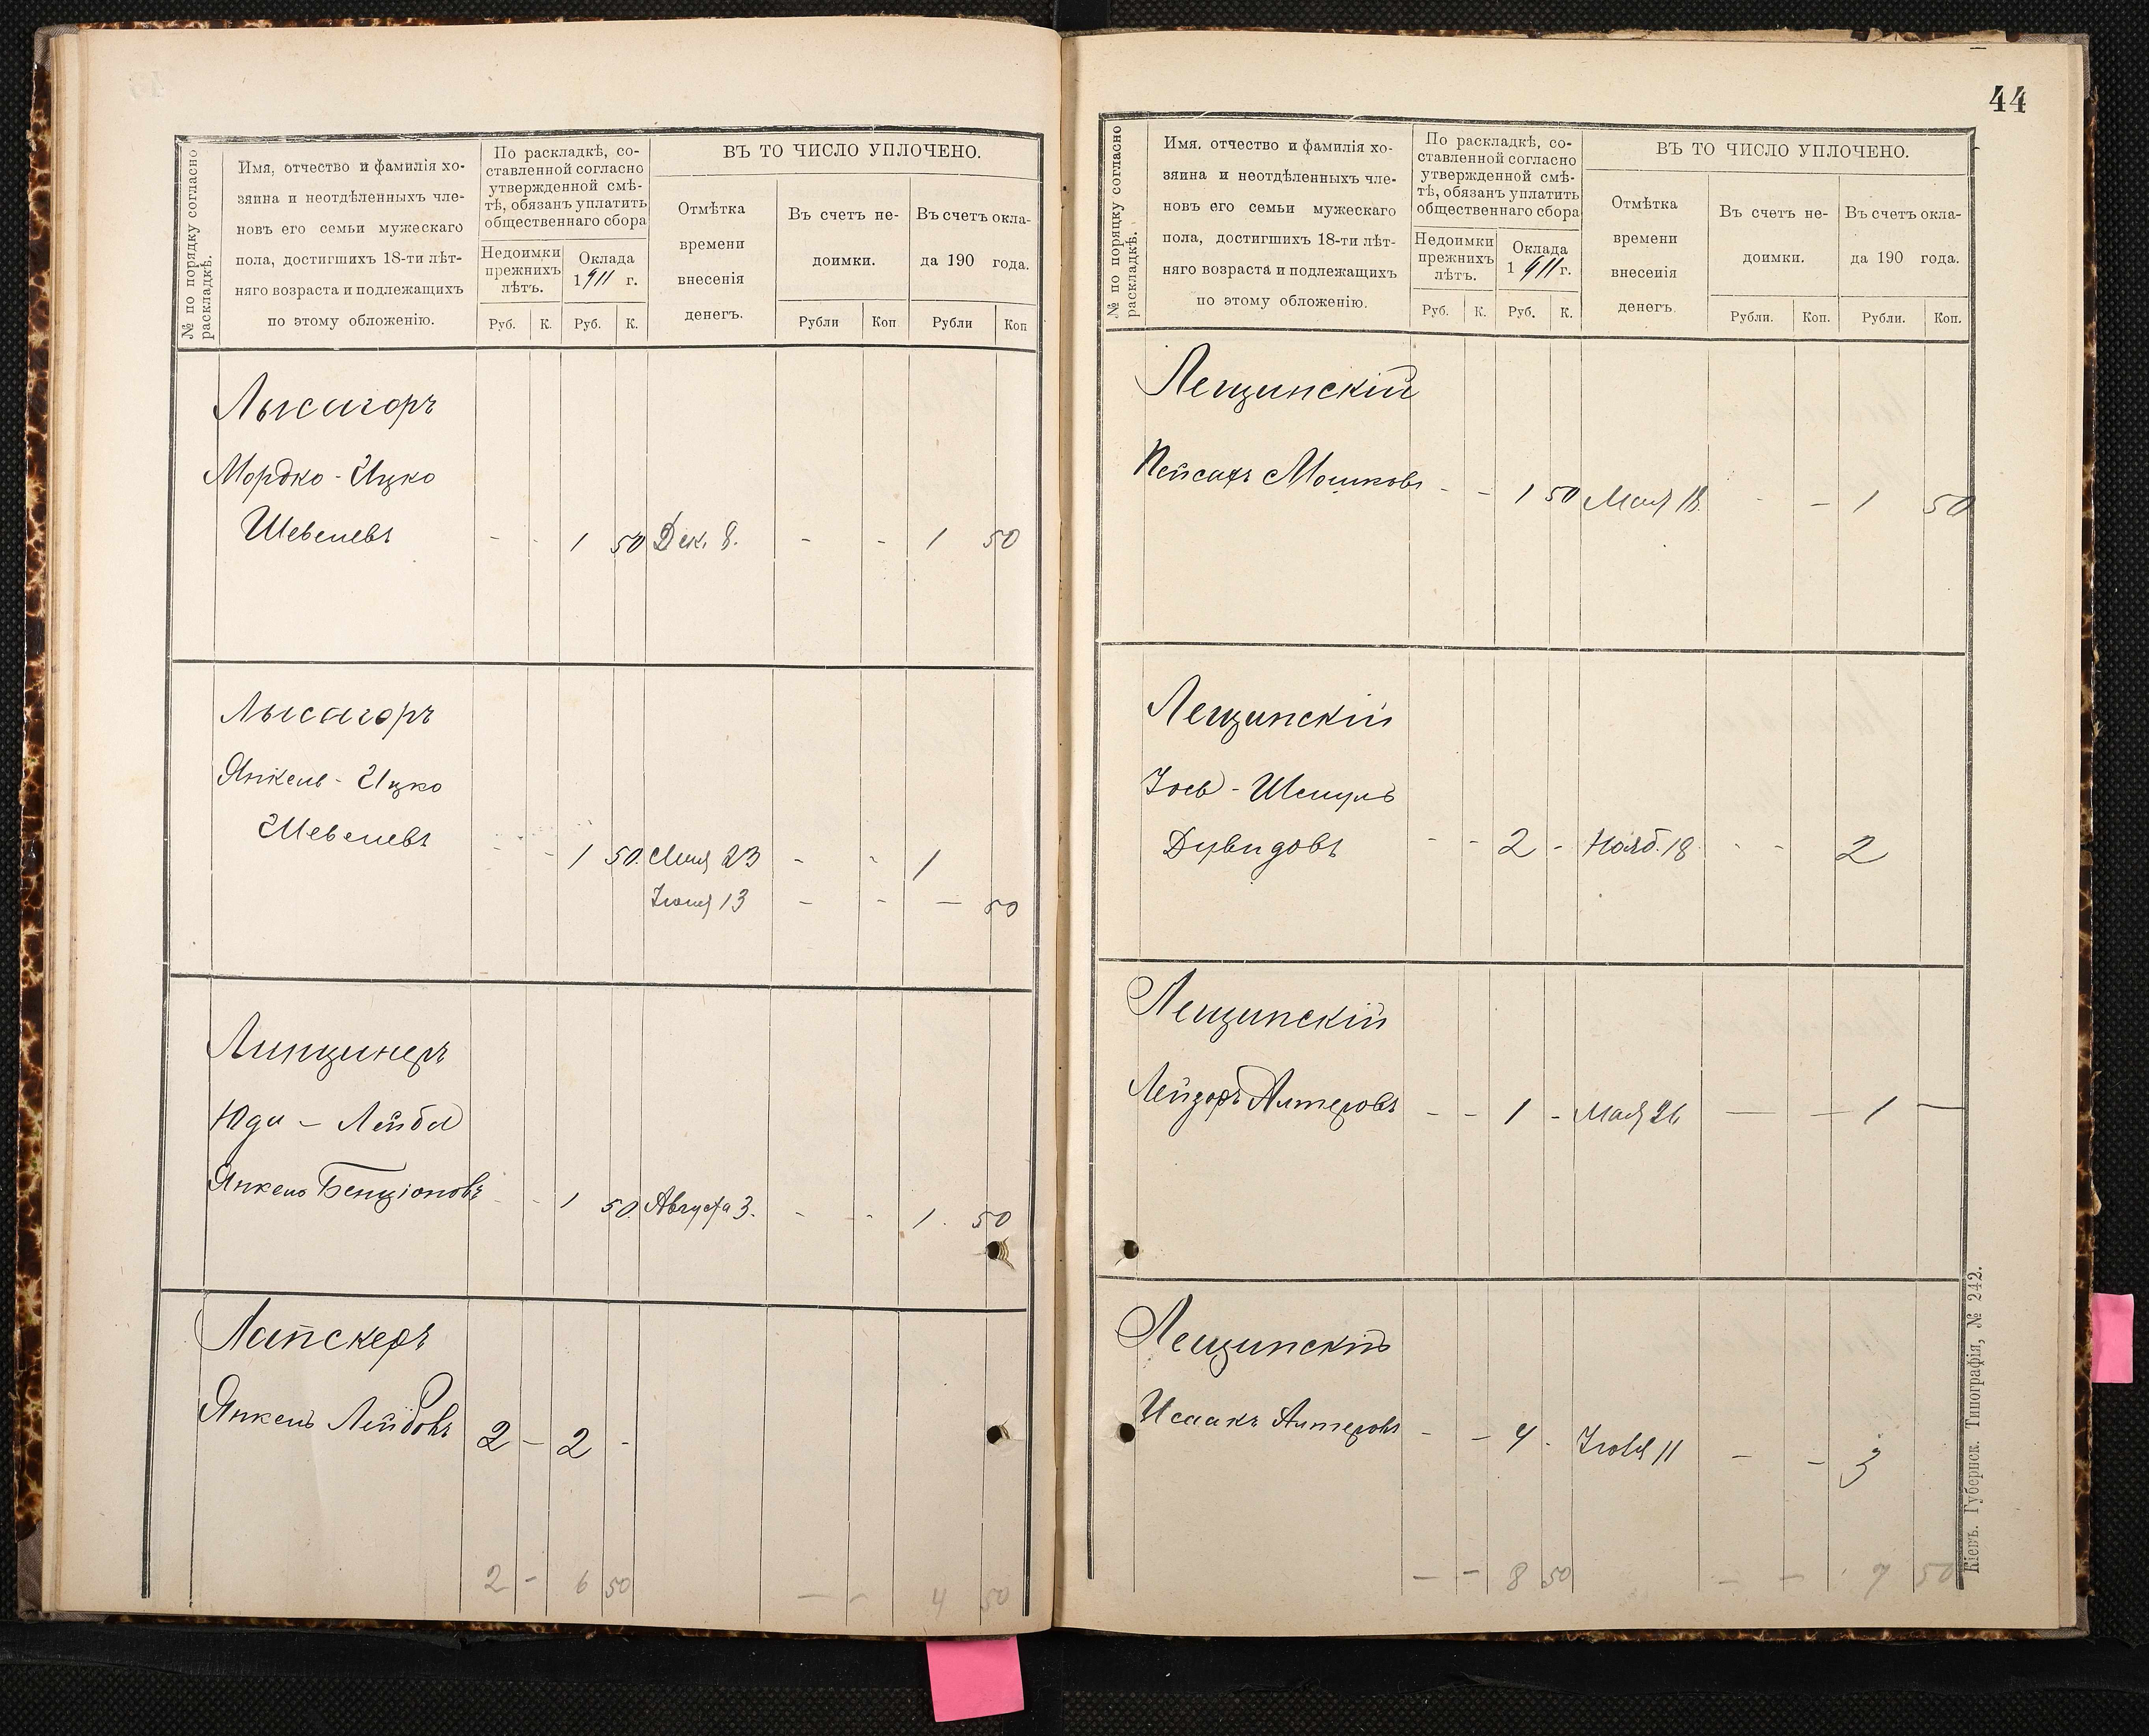 № по порядку согласно раскладкѣ.
Имя, отчество и фамилія хо-
зяина и неотдѣленныхъ чле-
новъ его семьи мужескаго
пола, достигшихъ 18-ти лѣт-
няго возраста и подлежащихъ
по этому обложенію.
По раскладкѣ, со-
ставленной согласно
утвержденной смѣ-
тѣ, обязанъ уплатить
общественнаго сбора
Недоимки
прежнихъ
лѣтъ.
Оклада
1911 г.
Руб. К. Руб. К.
ВЪ ТО ЧИСЛО УПЛОЧЕНО.
Отмѣтка
времени
внесенія
денегъ.
Въ счетъ не-
доимки.
Рубли Коп
Въ счетъ окла-
да 190 года.
Рубли Коп
Лысагоръ
Мордко - Ицко
Шевелевъ - - 1 50 Дек. 8. - - 1 50
Лысагоръ
Янкель - Ицко
Шевелевъ - - 1 50. Мая 23 - - 1
Іюня 13 - - — 50
Линцинеръ
Юда - Лейба
Янкель Бенціоновъ - - 1 50 Августа 3. - - 1. 50
Лапскеръ
Янкель Лейбовъ 2 - 2 -
2 - 6 50 — - 4 50
44
№ по порядку согласно раскладкѣ.
Имя. отчество и фамилія хо-
зяина и неотдѣленныхъ чле-
новъ его семьи мужескаго
пола, достигшихъ 18-ти лѣт-
няго возраста и подлежащихъ
по этому обложенію.
По раскладкѣ, со-
ставленной согласно
утвержденной смѣ-
тѣ, обязанъ уплатить
общественнаго сбора
Недоимки
прежнихъ
лѣтъ.
Оклада
1911 г.
Руб. К. Руб. К.
ВЪ ТО ЧИСЛО УПЛОЧЕНО.
Отмѣтка
времени
внесенія
денегъ.
Въ счетъ не-
доимки.
Рубли. Коп.
Въ счетъ окла-
да 190 года.
Рубли. Коп.
Лещинскій
Пейсахъ Мошковъ - - 1 50 Мая 18. - — 1 50
Лещинскій
Іось - Шмуль
Дувидовъ - - 2 - Нояб. 18 - - 2
Лещинскій
Лейзоръ Алтеровъ - - 1 - Мая 26 — — 1 —
Лещинскій
Исаакъ Алтеровъ - - 4 - Іюля 11 - - 3
— - 8 50 — - 7 50
Кіевъ. Губернск. Типографія, № 242.